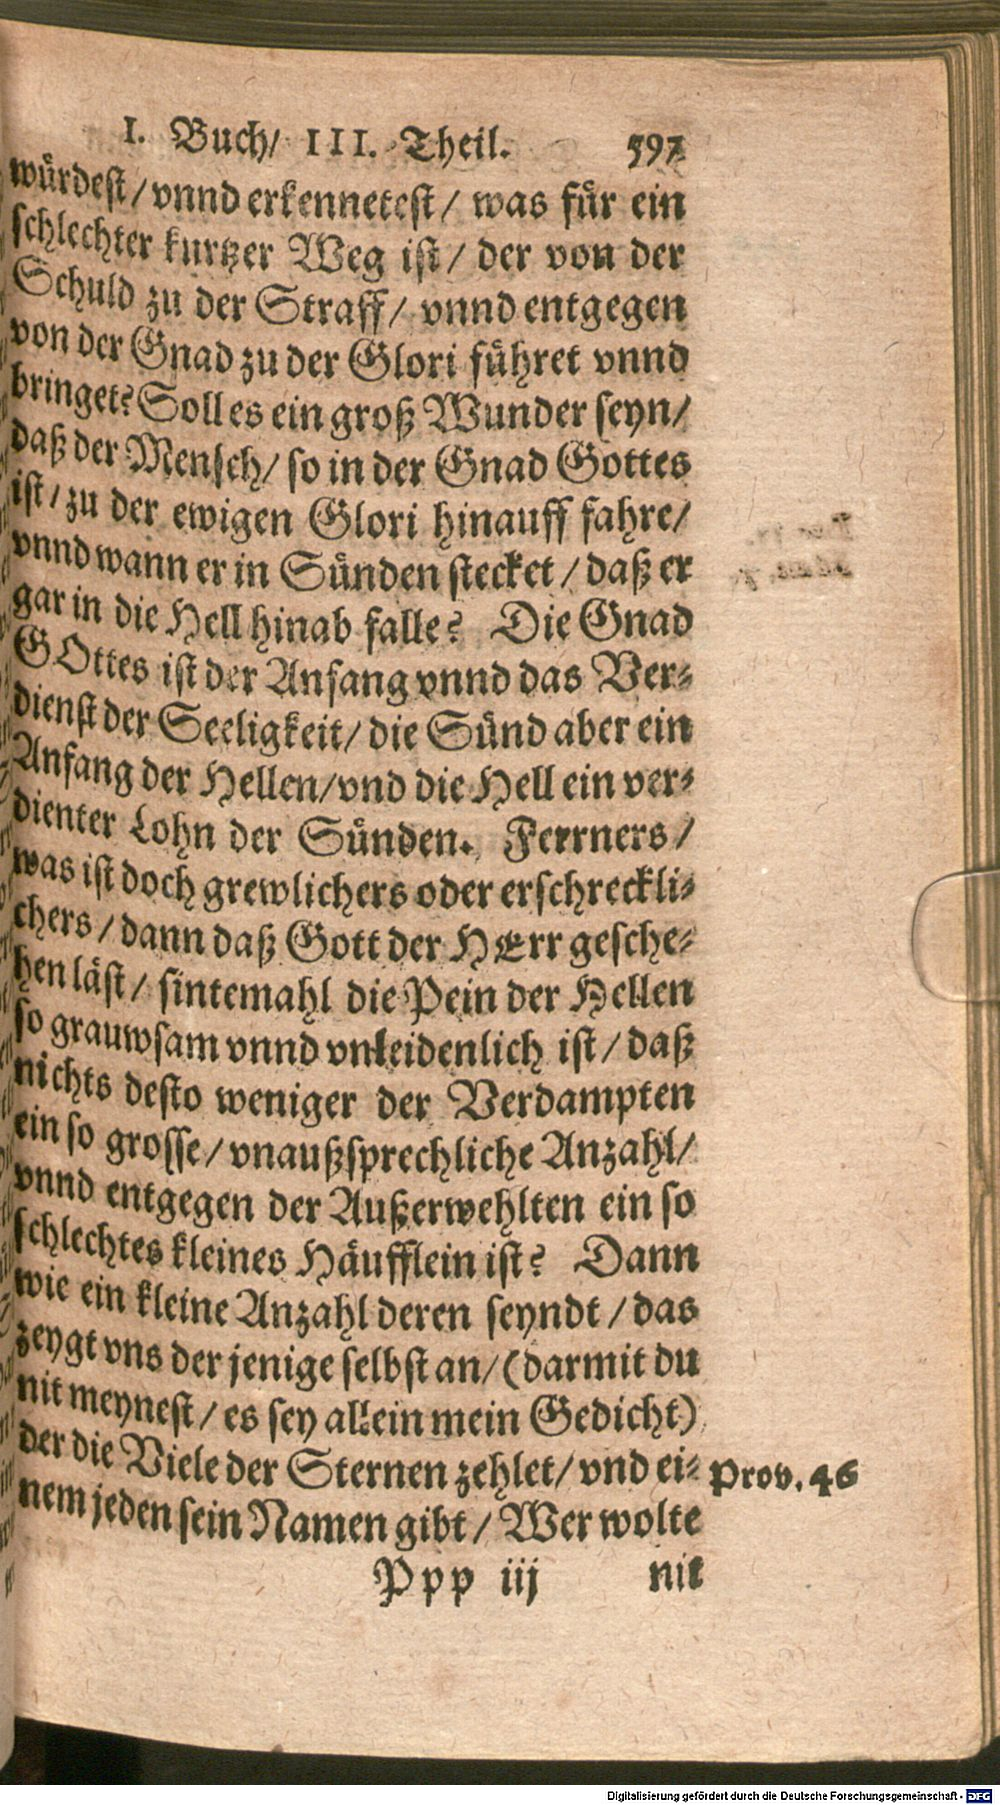 I. Buch/ III. Theil. 597
würdest/ vnnd erkennetest/ was für ein
schlechter kurtzer Weg ist/ der von der
Schuld zu der Straff/ vnnd entgegen
von der Gnad zu der Glori führet vnnd
bringet? Soll es ein groß Wunder seyn/
daß der Mensch/ so in der Gnad Gottes
ist/ zu der ewigen Glori hinauff fahre/
vnnd wann er in Sünden stecket/ daß er
gar in die Hell hinab falle? Die Gnad
GOttes ist der Anfang vnnd das Ver-
dienst der Seeligkeit/ die Sünd aber ein
Anfang der Hellen/ vnd die Hell ein ver-
dienter Lohn der Sünden. Ferrners/
was ist doch grewlichers oder erschreckli-
chers/ dann daß Gott der HErr gesche-
hen läst/ sintemahl die Pein der Hellen
so grauwsam vnnd vnleidenlich ist/ daß
nichts desto weniger der Verdampten
ein so grosse/ vnaußsprechliche Anzahl/
vnnd entgegen der Außerwehlten ein so
schlechtes kleines Häufflein ist? Dann
wie ein kleine Anzahl deren seyndt/ das
zeygt vns der jenige selbst an/ (darmit du
nit meynest/ es sey allein mein Gedicht)
der die Viele der Sternen zehlet/ vnd ei- Prov. 46
nem jeden sein Namen gibt/ Wer wolte
Ppp iij nit
Digitalisierung gefördert durch die Deutsche Forschungsgemeinschaft - DFG